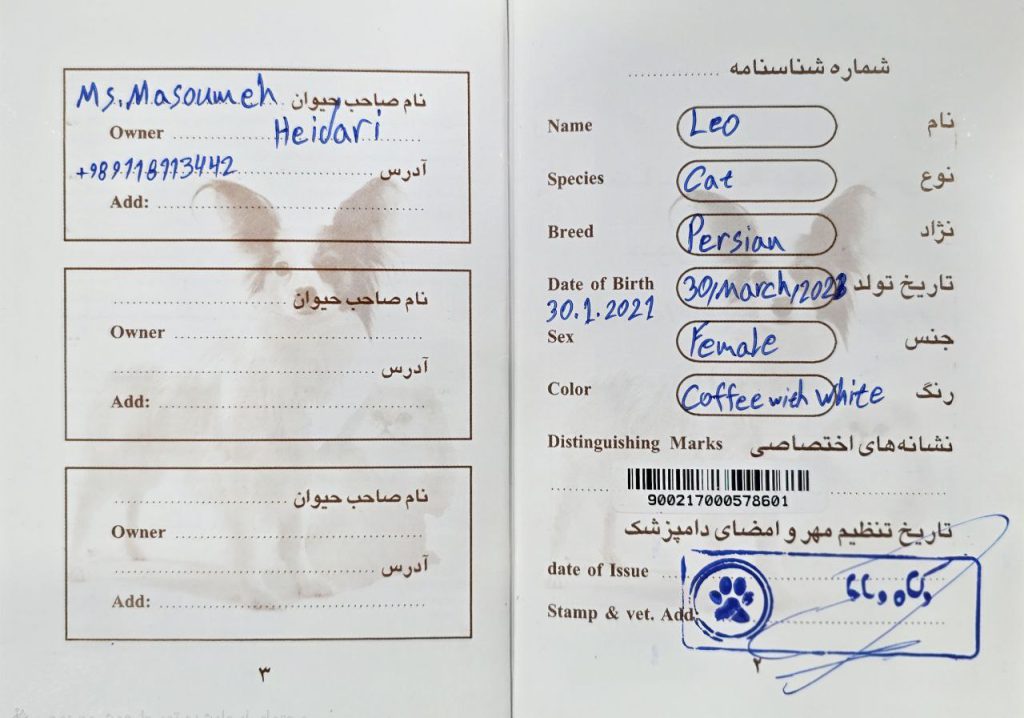 Ms. Masoumeh نام صاحب حیوان
Owner Heidari
+989118913442 آدرس
Add:
نام صاحب حیوان
Owner
آدرس
Add:
نام صاحب حیوان
Owner
آدرس
Add:
۳
شماره شناسنامه
Name Leo نام
Species Cat نوع
Breed Persian نژاد
Date of Birth 30,March,2023 تاریخ تولد
30.1.2021
Sex Female جنس
Color Coffee with white رنگ
Distinguishing Marks نشانه‌های اختصاصی
900217000578601
تاریخ تنظیم مهر و امضای دامپزشک
date of Issue
Stamp & vet. Add:
۲